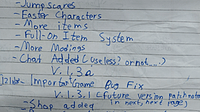 -Jumpscares
-Easter Characters
-More items
-Full-On Item System
-More Modings
-Chat Added (Useless? or not...)
V.1.3a
Important Game Bug Fix
V.1.3.1 (Future version patch notes
in next, next page)
-Shop added